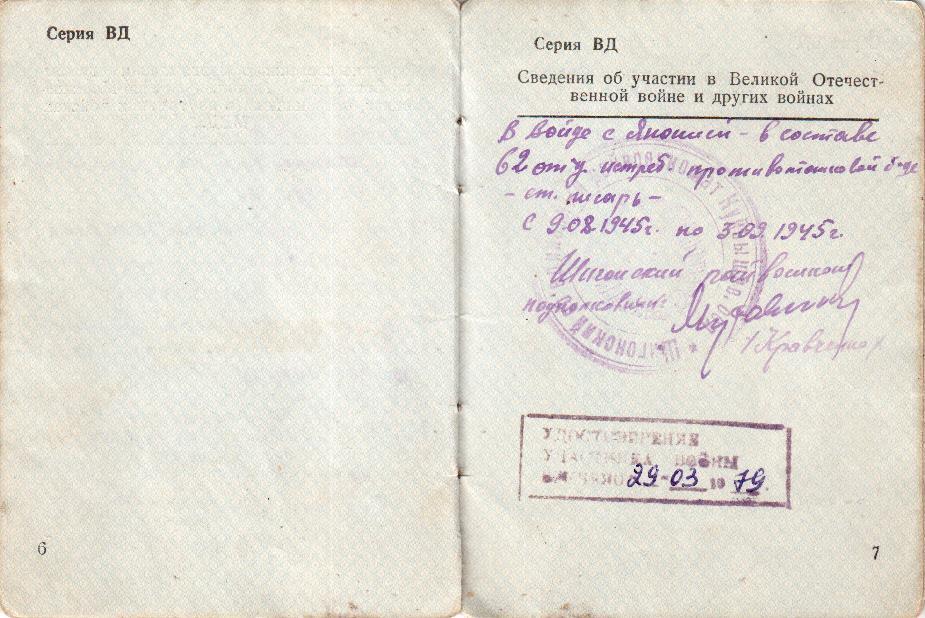 Серия ВД
6
Серия ВД
Сведения об участии в Великой Отечест-
венной войне и других войнах
В войне с Японией - в составе
62 отд. истреб. противотанковой б-де
- ст. писарь -
С 9.08.1945г. по 3.09.1945г.
Шигонский райвоенком
подполковник
/Кравченко/
Шигонский
УДОСТОВЕРЕНИЕ
УЧАСТНИКА ВОЙНЫ
ВРУЧЕНО 29-03 1979
7